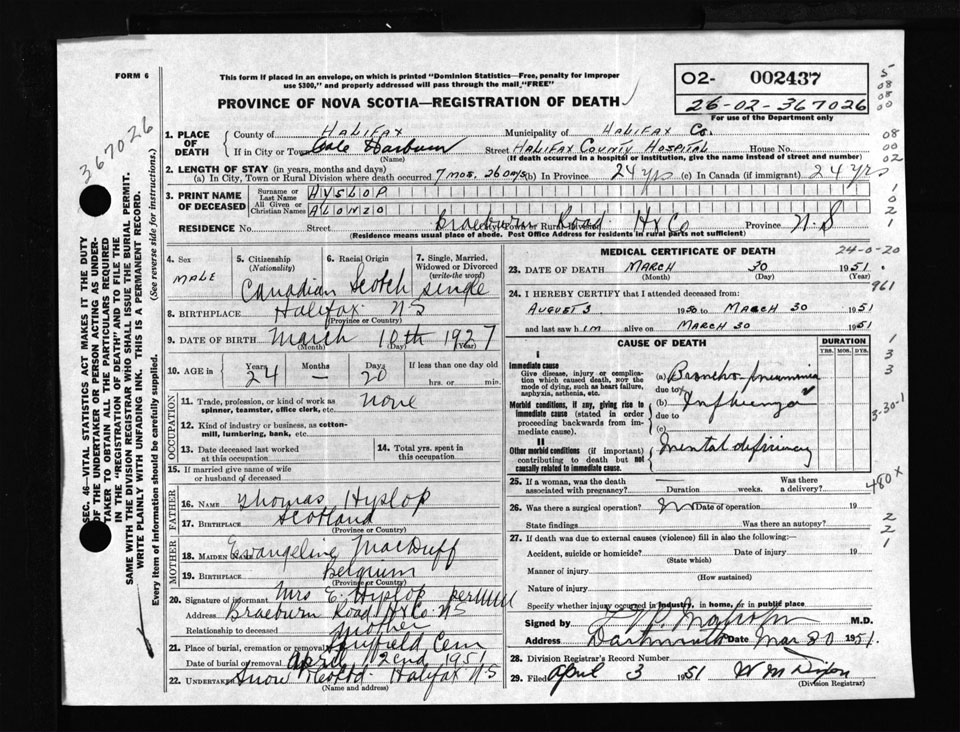 FORM 6
This form if placed in an envelope, on which is printed "Dominion Statistics—Free, penalty for improper
use $300," and properly addressed will pass through the mail "FREE"
PROVINCE OF NOVA SCOTIA—REGISTRATION OF DEATH
02- 002437
26-02-367026
For use of the Department only
367026
5
08
08
00
1. PLACE OF DEATH
County of HALIFAX Municipality of HALIFAX Co.
If in City or Town Cole Harbour Street HALIFAX COUNTY HOSPITAL House No.
(Name) (If death occurred in a hospital or institution, give the name instead of street and number)
08
00
02
2. LENGTH OF STAY (in years, months and days)
(a) In City, Town or Rural Division where death occurred 7 mos. 26 days (b) In Province 24 yrs (c) In Canada (if immigrant) 24 yrs
3. PRINT NAME OF DECEASED
Surname or Last Name HYSLOP
All Given or Christian Names ALONZO
RESIDENCE No. Street Braeburn Road Hx Co Province N.S
City, Town or Rural Division
(Residence means usual place of abode. Post Office Address for residents in rural parts not sufficient)
4. Sex
MALE
5. Citizenship
(Nationality)
Canadian
6. Racial Origin
Scotch
7. Single, Married,
Widowed or Divorced
(write the word)
single
8. BIRTHPLACE Halifax NS
(Province or Country)
9. DATE OF BIRTH March 10th 1927
(Month) (Day) (Year)
10. AGE in
Years Months Days If less than one day
24 — 20 hrs. or min.
OCCUPATION
11. Trade, profession, or kind of work as
spinner, teamster, office clerk, etc. None
12. Kind of industry or business, as cotton-
mill, lumbering, bank, etc.
13. Date deceased last worked
at this occupation
14. Total yrs. spent in
this occupation
15. If married give name of wife
or husband of deceased
FATHER
16. NAME Thomas Hyslop
17. BIRTHPLACE Scotland
(Province or Country)
MOTHER
18. MAIDEN NAME Evangeline MacDuff
19. BIRTHPLACE Belgium
(Province or Country)
20. Signature of informant Mrs E. Hyslop per
Address Braeburn Road Hx Co NS
Relationship to deceased mother
21. Place of burial, cremation or removal Fairfield Cem
Date of burial or removal April 2nd 1951
22. Undertaker Snow Halifax N.S
(Name and address)
MEDICAL CERTIFICATE OF DEATH
24-0-20
23. DATE OF DEATH MARCH 30 1951.
(Month) (Day) (Year)
961
24. I HEREBY CERTIFY that I attended deceased from:
AUGUST 3 1950 to MARCH 30 1951
and last saw him alive on MARCH 30 1951
CAUSE OF DEATH
DURATION
YRS. MOS. DYS.
I
Immediate cause
Give disease, injury or complica-
tion which caused death, NOT the
mode of dying, such as heart failure,
asphyxia, asthenia, etc.
(a) Broncho pneumonia
due to
Morbid conditions, if any, giving rise to
immediate cause (stated in order
proceeding backwards from im-
mediate cause).
(b) Influenza
due to
(c)
II
Other morbid conditions (if important)
contributing to death but not
causally related to immediate cause.
Mental deficiency
3-30-1
480X
25. If a woman, was the death
associated with pregnancy? Duration weeks. Was there
a delivery?
26. Was there a surgical operation? No Date of operation 19
State findings Was there an autopsy?
27. If death was due to external causes (violence) fill in also the following:
Accident, suicide or homicide? Date of injury 19
(State which)
Manner of injury
(How sustained)
Nature of injury
Specify whether injury occurred in industry, in home, or in public place
Signed by M.D.
Address Dartmouth Date Mar 30 1951.
28. Division Registrar's Record Number
29. Filed April 3 1951 W M Dixon
(Division Registrar)
SEC. 46—VITAL STATISTICS ACT MAKES IT THE DUTY
OF THE UNDERTAKER OR PERSON ACTING AS UNDER-
TAKER TO OBTAIN ALL THE PARTICULARS REQUIRED
IN THE "REGISTRATION OF DEATH" AND TO FILE THE
SAME WITH THE DIVISION REGISTRAR WHO SHALL ISSUE THE BURIAL PERMIT.
WRITE PLAINLY WITH UNFADING INK. THIS IS A PERMANENT RECORD.
Every item of information should be carefully supplied. (See reverse side for instructions.)